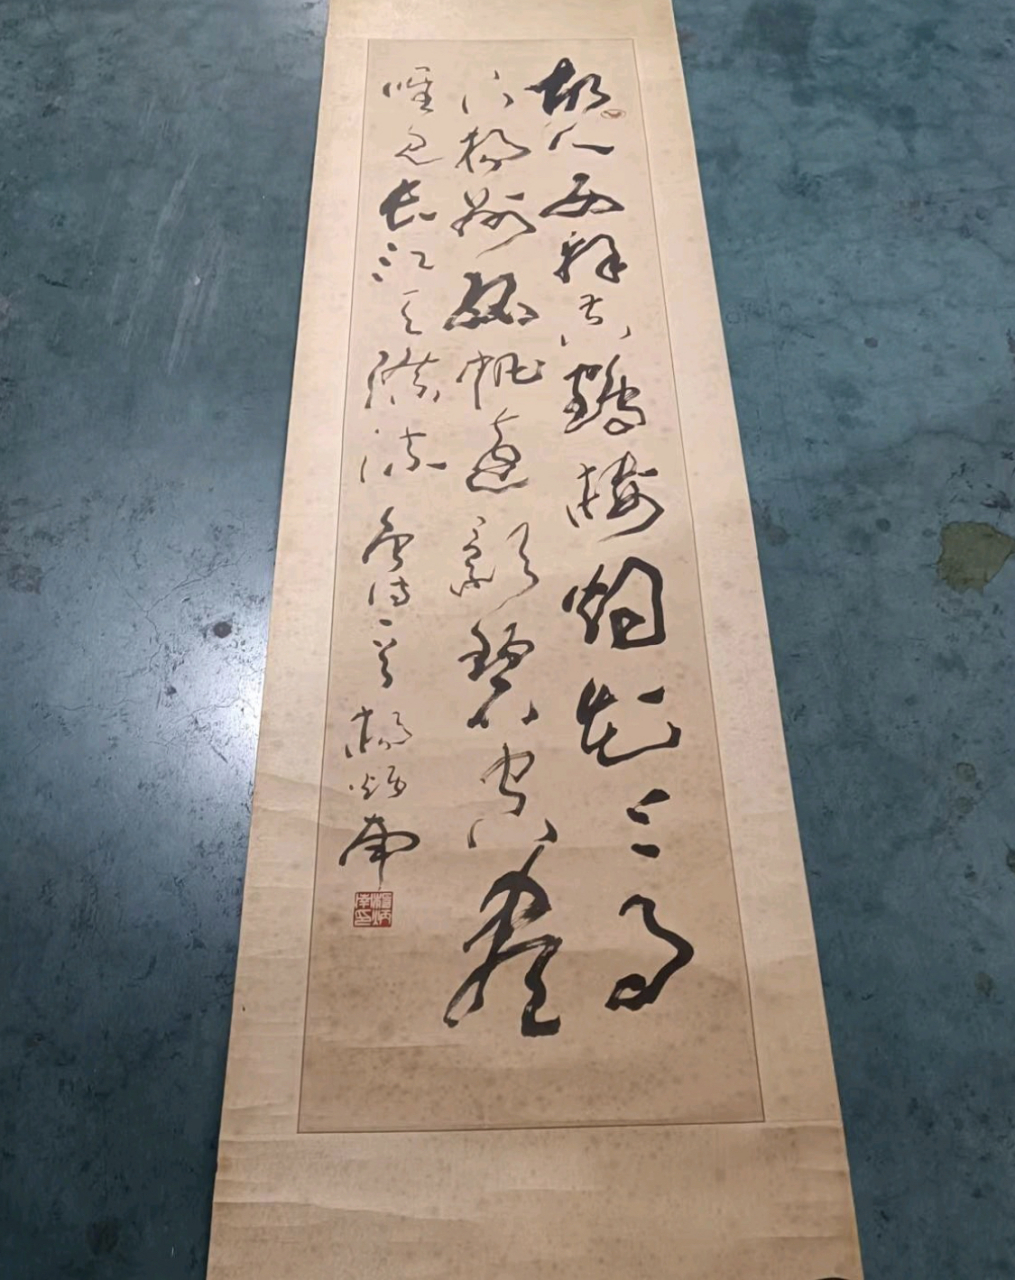 故人西辞黄鹤楼烟花三月
下扬州孤帆远影碧空尽
唯见长江天际流 唐诗一首 杨炳南
楊炳南印